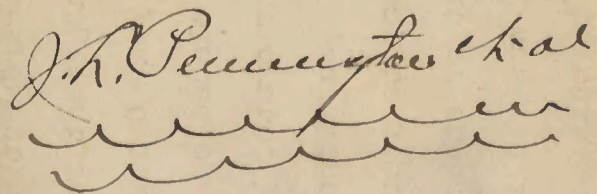 J. L. Pennington et al